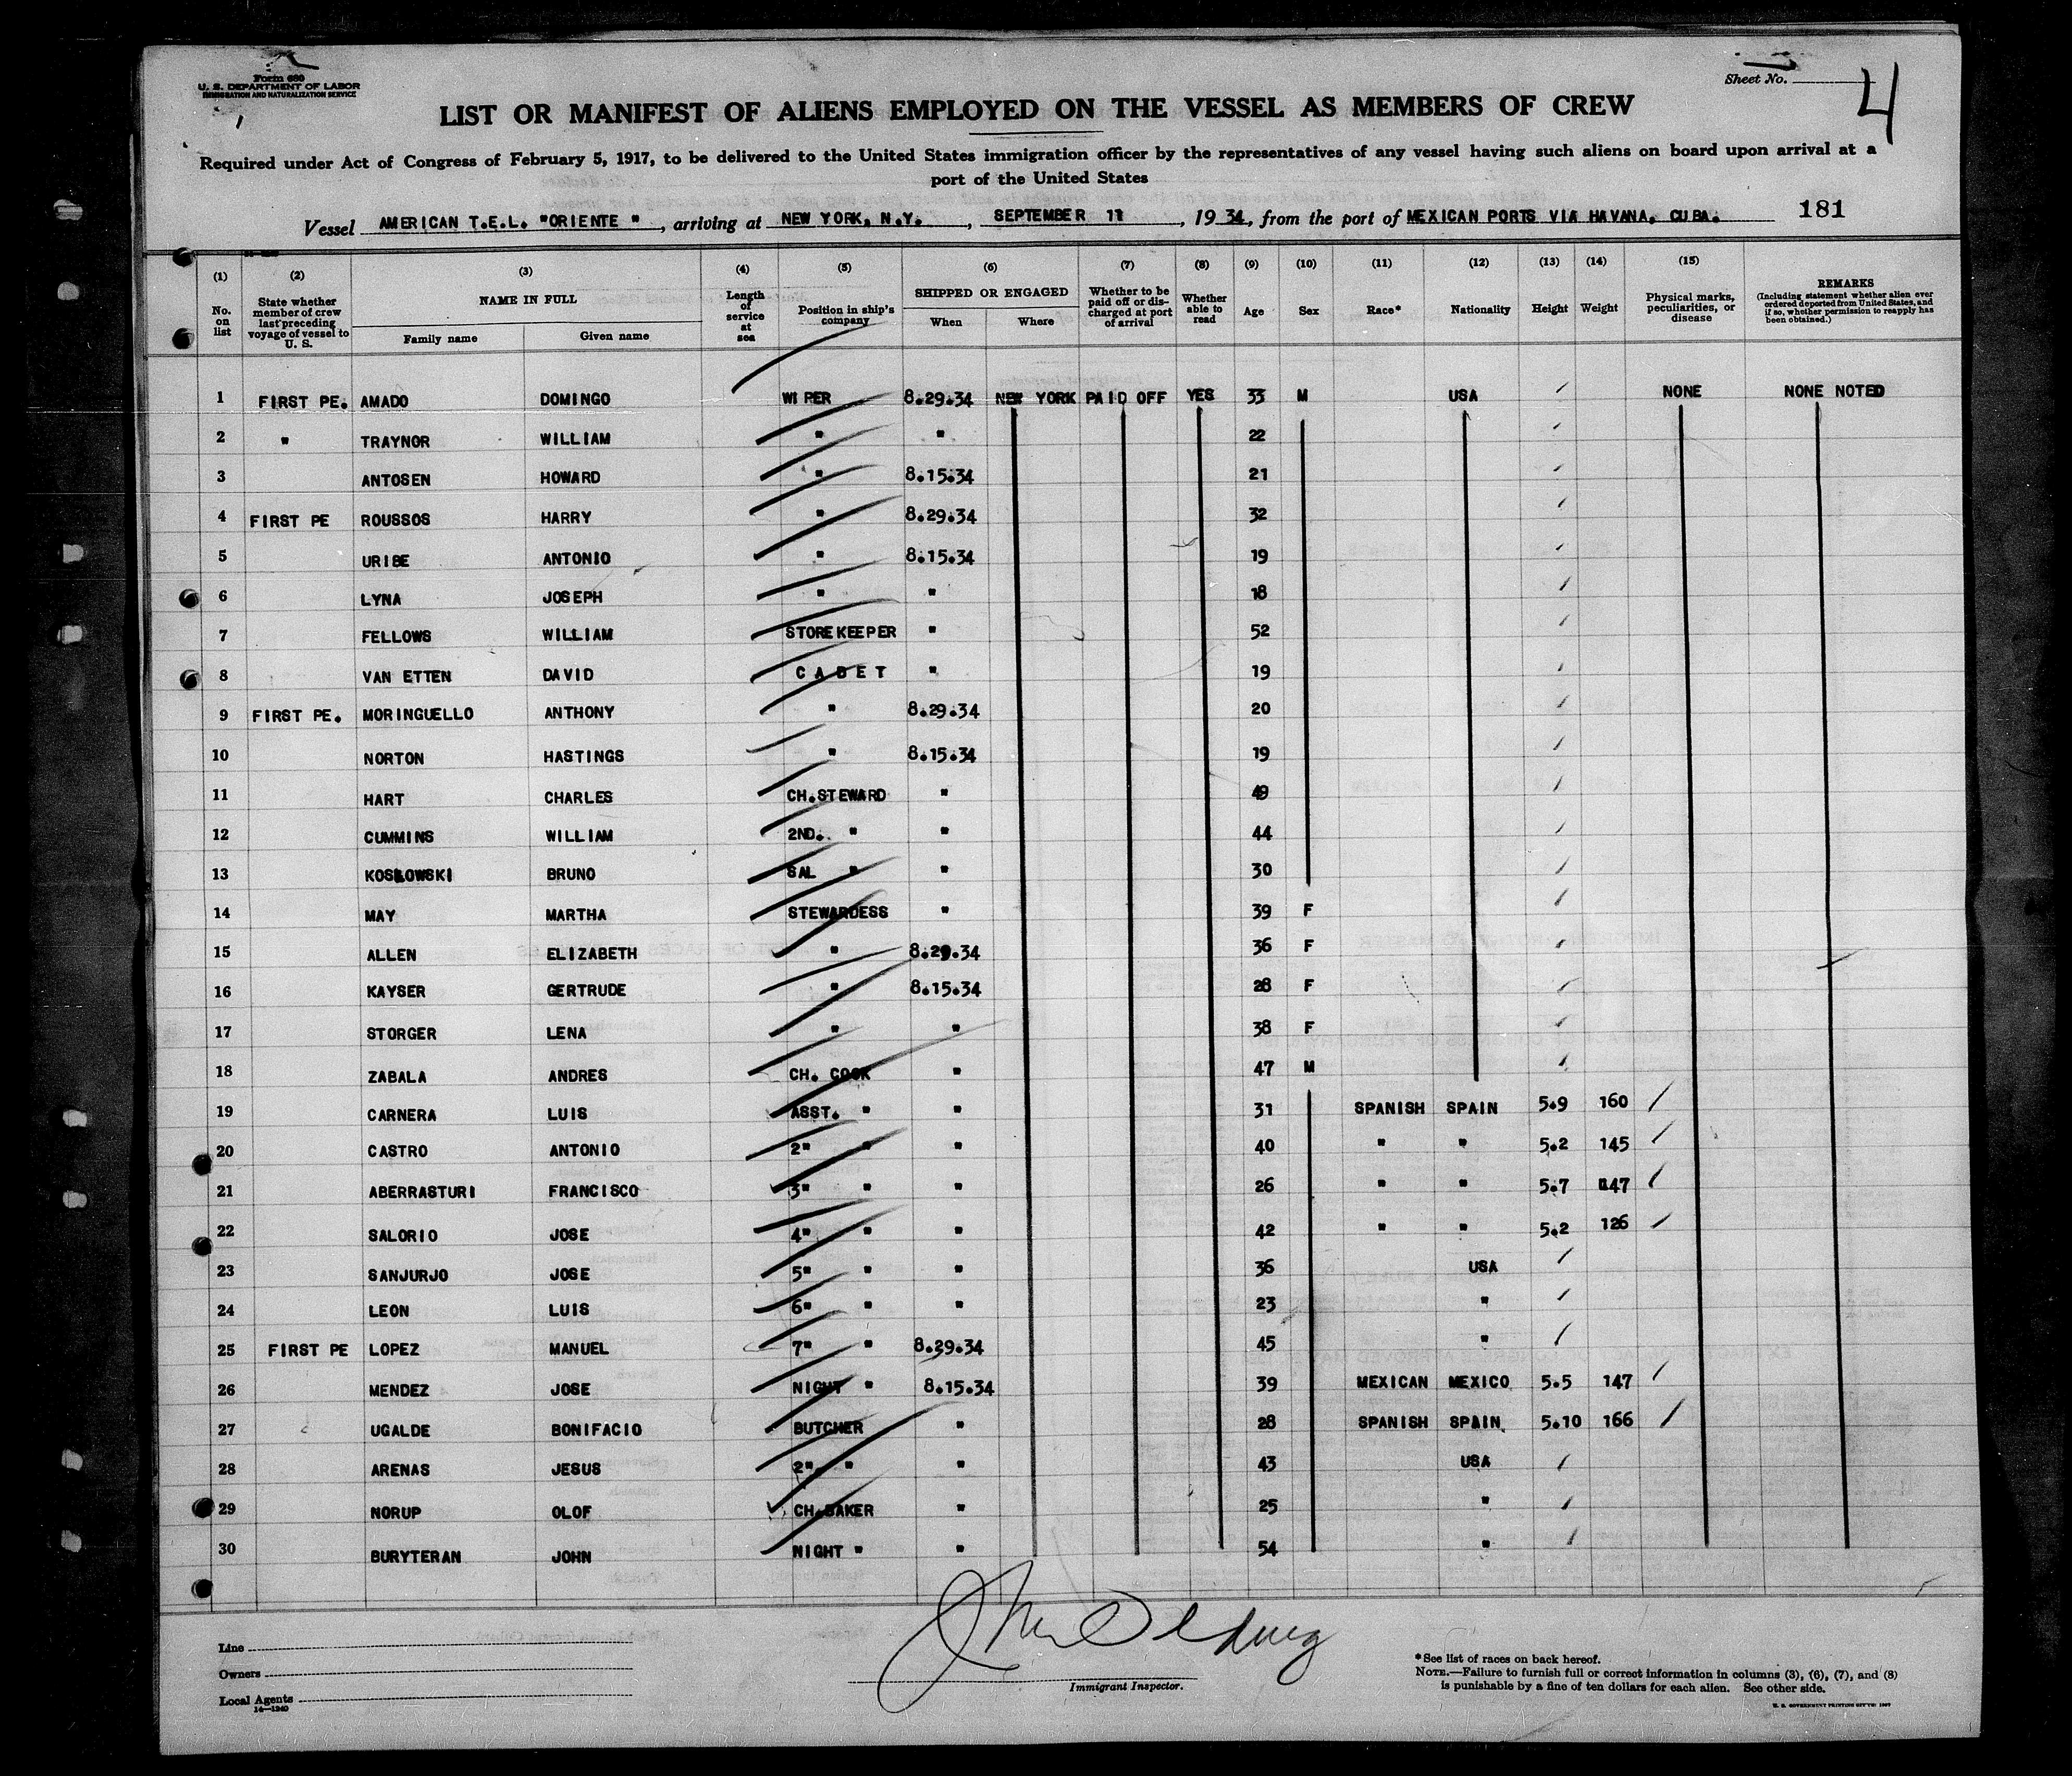 Form 680
U. S. DEPARTMENT OF LABOR
IMMIGRATION AND NATURALIZATION SERVICE
Sheet No. 4
LIST OR MANIFEST OF ALIENS EMPLOYED ON THE VESSEL AS MEMBERS OF CREW
Required under Act of Congress of February 5, 1917, to be delivered to the United States immigration officer by the representatives of any vessel having such aliens on board upon arrival at a
port of the United States
Vessel AMERICAN T.E.L. "ORIENTE ", arriving at NEW YORK, N.Y., SEPTEMBER 11, 1934, from the port of MEXICAN PORTS VIA HAVANA, CUBA. 181
(1) (2) (3) (4) (5) (6) (7) (8) (9) (10) (11) (12) (13) (14) (15)
No. on list State whether member of crew last preceding voyage of vessel to U. S. NAME IN FULL Family name Given name Length of service at sea Position in ship's company SHIPPED OR ENGAGED When Where Whether to be paid off or discharged at port of arrival Whether able to read Age Sex Race* Nationality Height Weight Physical marks, peculiarities, or disease REMARKS (Including statement whether alien ever ordered deported from United States, and if so, whether permission to reapply has been obtained.)
1 FIRST PE. AMADO DOMINGO WIPER 8.29.34 NEW YORK PAID OFF YES 33 M USA NONE NONE NOTED
2 " TRAYNOR WILLIAM " " 22
3 ANTOSEN HOWARD " 8.15.34 21
4 FIRST PE ROUSSOS HARRY " 8.29.34 32
5 URIBE ANTONIO " 8.15.34 19
6 LYNA JOSEPH " " 18
7 FELLOWS WILLIAM STOREKEEPER " 52
8 VAN ETTEN DAVID CADET " 19
9 FIRST PE. MORINGUELLO ANTHONY " 8.29.34 20
10 NORTON HASTINGS " 8.15.34 19
11 HART CHARLES CH.STEWARD " 49
12 CUMMINS WILLIAM 2ND. " " 44
13 KOSLOWSKI BRUNO SAL " " 30
14 MAY MARTHA STEWARDESS " 39 F
15 ALLEN ELIZABETH " 8.29.34 36 F
16 KAYSER GERTRUDE " 8.15.34 28 F
17 STORGER LENA " " 38 F
18 ZABALA ANDRES CH. COOK " 47 M
19 CARNERA LUIS ASST. " " 31 SPANISH SPAIN 5.9 160
20 CASTRO ANTONIO 2" " " 40 " " 5.2 145
21 ABERRASTURI FRANCISCO 3" " " 26 " " 5.7 147
22 SALORIO JOSE 4" " " 42 " " 5.2 126
23 SANJURJO JOSE 5" " " 36 USA
24 LEON LUIS 6" " " 23 "
25 FIRST PE LOPEZ MANUEL 7" " 8.29.34 45 "
26 MENDEZ JOSE NIGHT " 8.15.34 39 MEXICAN MEXICO 5.5 147
27 UGALDE BONIFACIO BUTCHER " 28 SPANISH SPAIN 5.10 166
28 ARENAS JESUS 2" " " 43 USA
29 NORUP OLOF CH.BAKER " 25 "
30 BURYTERAN JOHN NIGHT " " 54 "
Line
Owners
Local Agents
14—1240
Immigrant Inspector.
*See list of races on back hereof.
NOTE.—Failure to furnish full or correct information in columns (3), (6), (7), and (8)
is punishable by a fine of ten dollars for each alien. See other side.